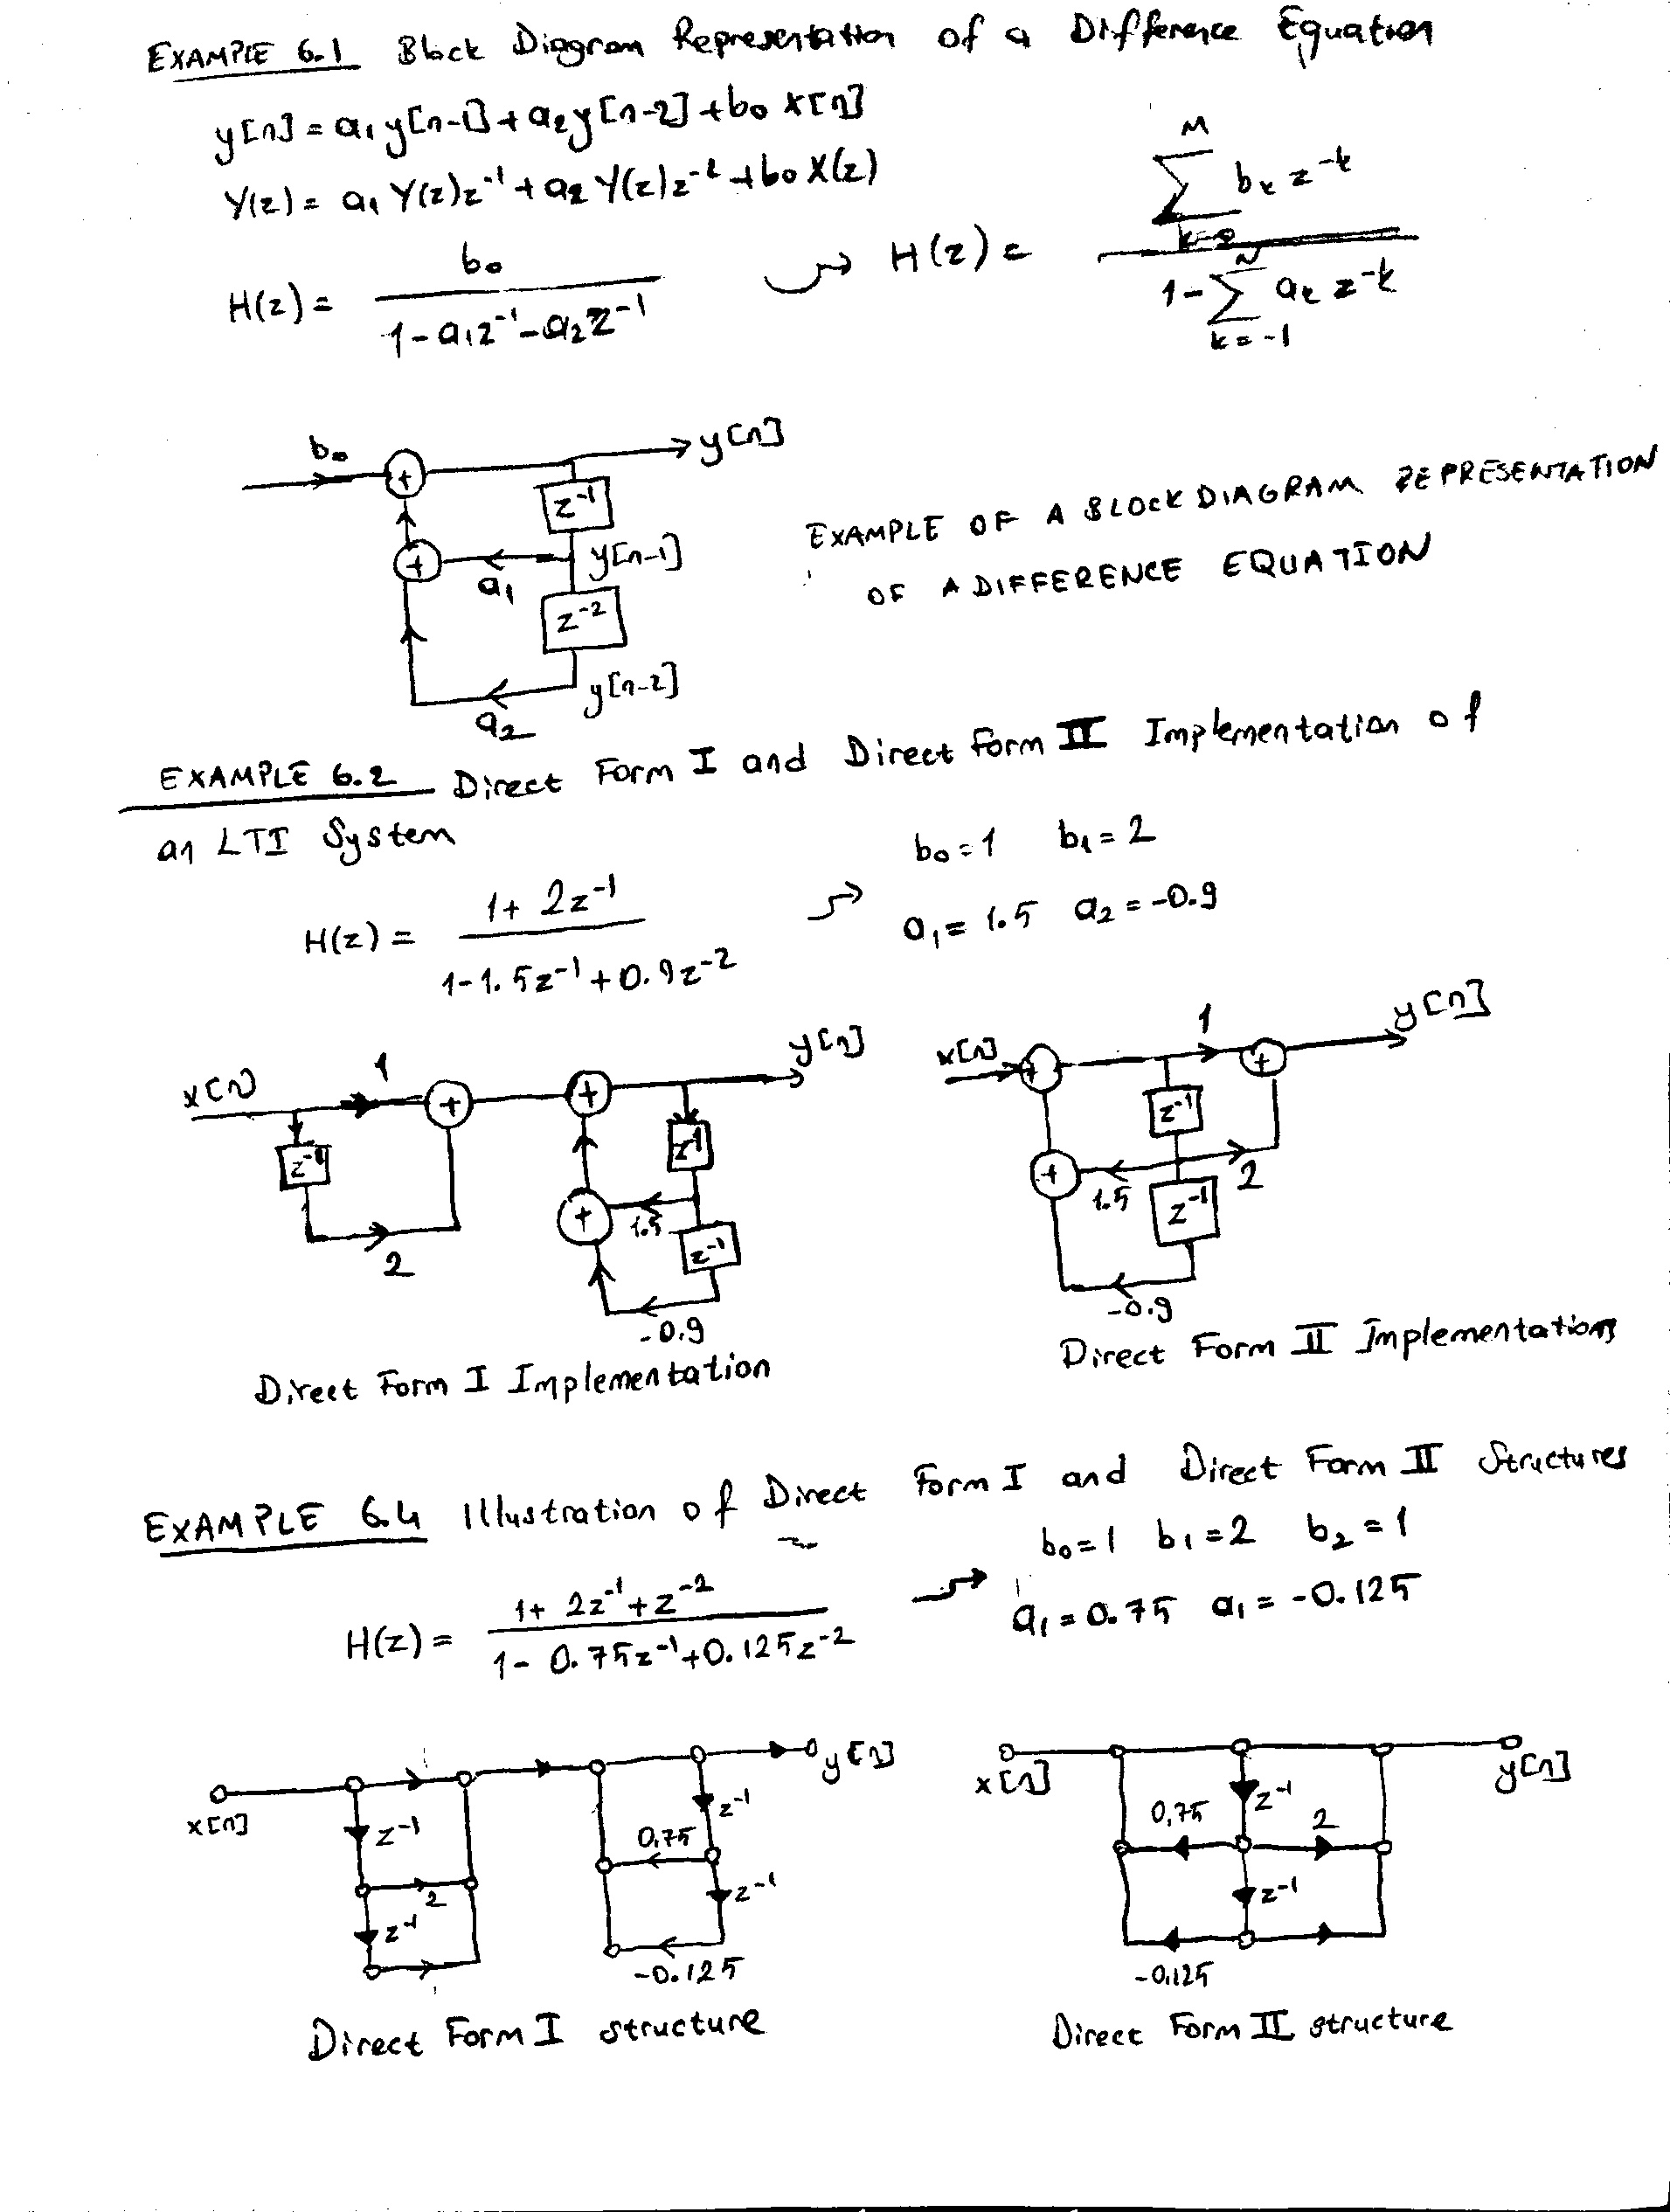 EXAMPLE 6.1 Block Diagram Representation of a Difference Equation
y[n] = a₁y[n-1] + a₂y[n-2] + b₀ x[n]
Y(z) = a₁ Y(z)z⁻¹ + a₂ Y(z)z⁻² + b₀ X(z)
H(z) = b₀ / (1 - a₁z⁻¹ - a₂z⁻¹) ⤳ H(z) = (M Σ k=0 bₖ z⁻ᵏ) / (1 - N Σ k=-1 aₖ z⁻ᵏ)
b₀ + y[n]
z⁻¹
+ a₁ y[n-1]
z⁻²
a₂ y[n-2]
EXAMPLE OF A BLOCK DIAGRAM REPRESENTATION
OF A DIFFERENCE EQUATION
EXAMPLE 6.2 Direct Form I and Direct Form II Implementation of
an LTI System
H(z) = (1 + 2z⁻¹) / (1 - 1.5z⁻¹ + 0.9z⁻²)
b₀ = 1 b₁ = 2
a₁ = 1.5 a₂ = -0.9
x[n] 1 + + y[n]
z⁻¹ z⁻¹
2 + 1.5
z⁻¹
-0.9
Direct Form I Implementation
x[n] + 1 + y[n]
z⁻¹
+ 1.5 2
z⁻¹
-0.9
Direct Form II Implementation
EXAMPLE 6.4 Illustration of Direct Form I and Direct Form II Structures
H(z) = (1 + 2z⁻¹ + z⁻²) / (1 - 0.75z⁻¹ + 0.125z⁻²)
b₀ = 1 b₁ = 2 b₂ = 1
a₁ = 0.75 a₁ = -0.125
x[n] y[n]
z⁻¹ z⁻¹
2 0,75
z⁻¹ z⁻¹
-0.125
Direct Form I structure
x[n] y[n]
z⁻¹
0,75 2
z⁻¹
-0,125
Direct Form II structure